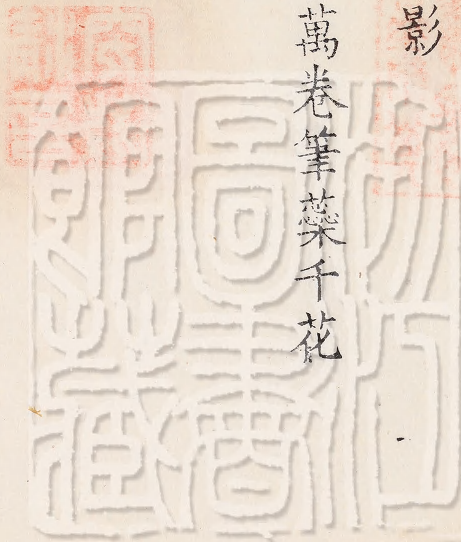 影
萬卷筆蘂千花
浙江
圖書
館藏